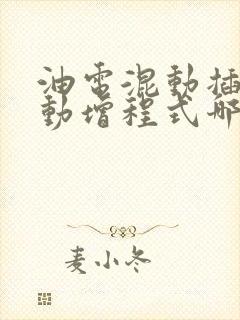 油電混動插
動增程式哪
麦小冬